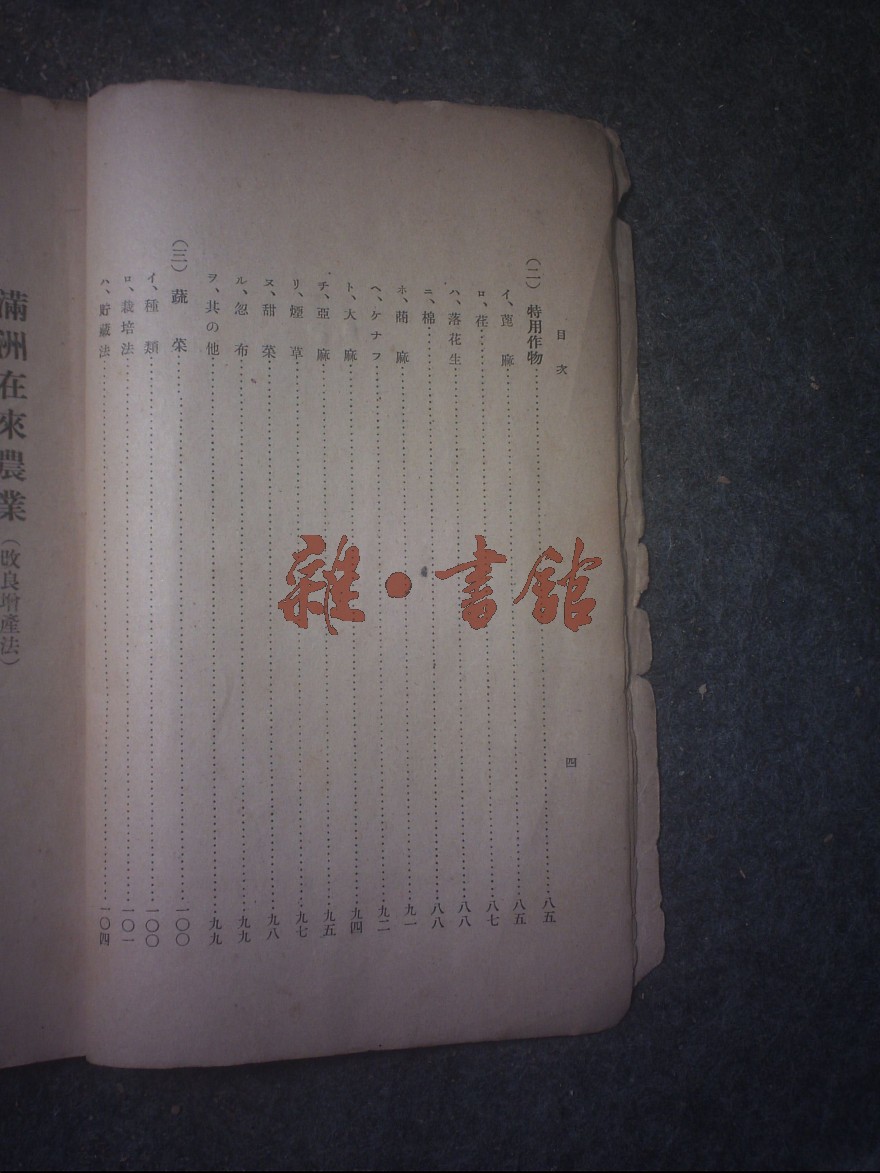 目次
四
(二) 特用作物……八五
イ、萞麻……八五
ロ、荏……八七
ハ、落花生……八八
ニ、棉……八八
ホ、莔麻……九一
ヘ、ケナフ……九二
ト、大麻……九四
チ、亞麻……九五
リ、煙草……九七
ヌ、甜菜……九八
ル、忽布……九九
ヲ、其の他……九九
(三) 蔬菜……一〇〇
イ、種類……一〇〇
ロ、栽培法……一〇一
ハ、貯藏法……一〇四
滿洲在來農業(改良增產法)
雜·書館